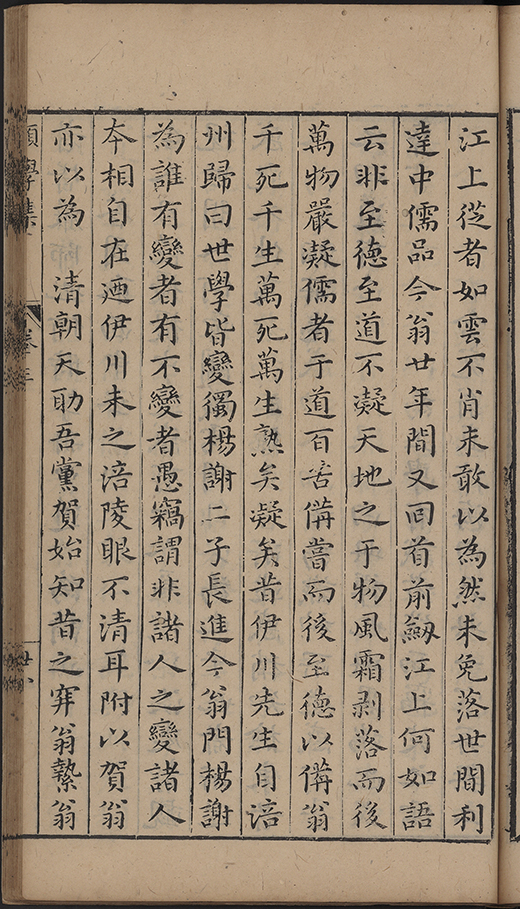 江上從者如雲不肖未敢以為然未免落世間利
達中儒品今翁廿年間又回首前劒江上何如語
云非至德至道不凝天地之于物風霜剥落而後
萬物嚴凝儒者于道百苦備嘗而後至德以備翁
千死千生萬死萬生熟矣凝矣昔伊川先生自涪
州歸曰世學皆變獨楊謝二子長進今翁門楊謝
為誰有變者有不變者愚竊謂非諸人之變諸人
本相自在迺伊川未之涪陵眼不清耳附以賀翁
亦以為　清朝天助吾黨賀始知昔之穽翁縶翁
願學集